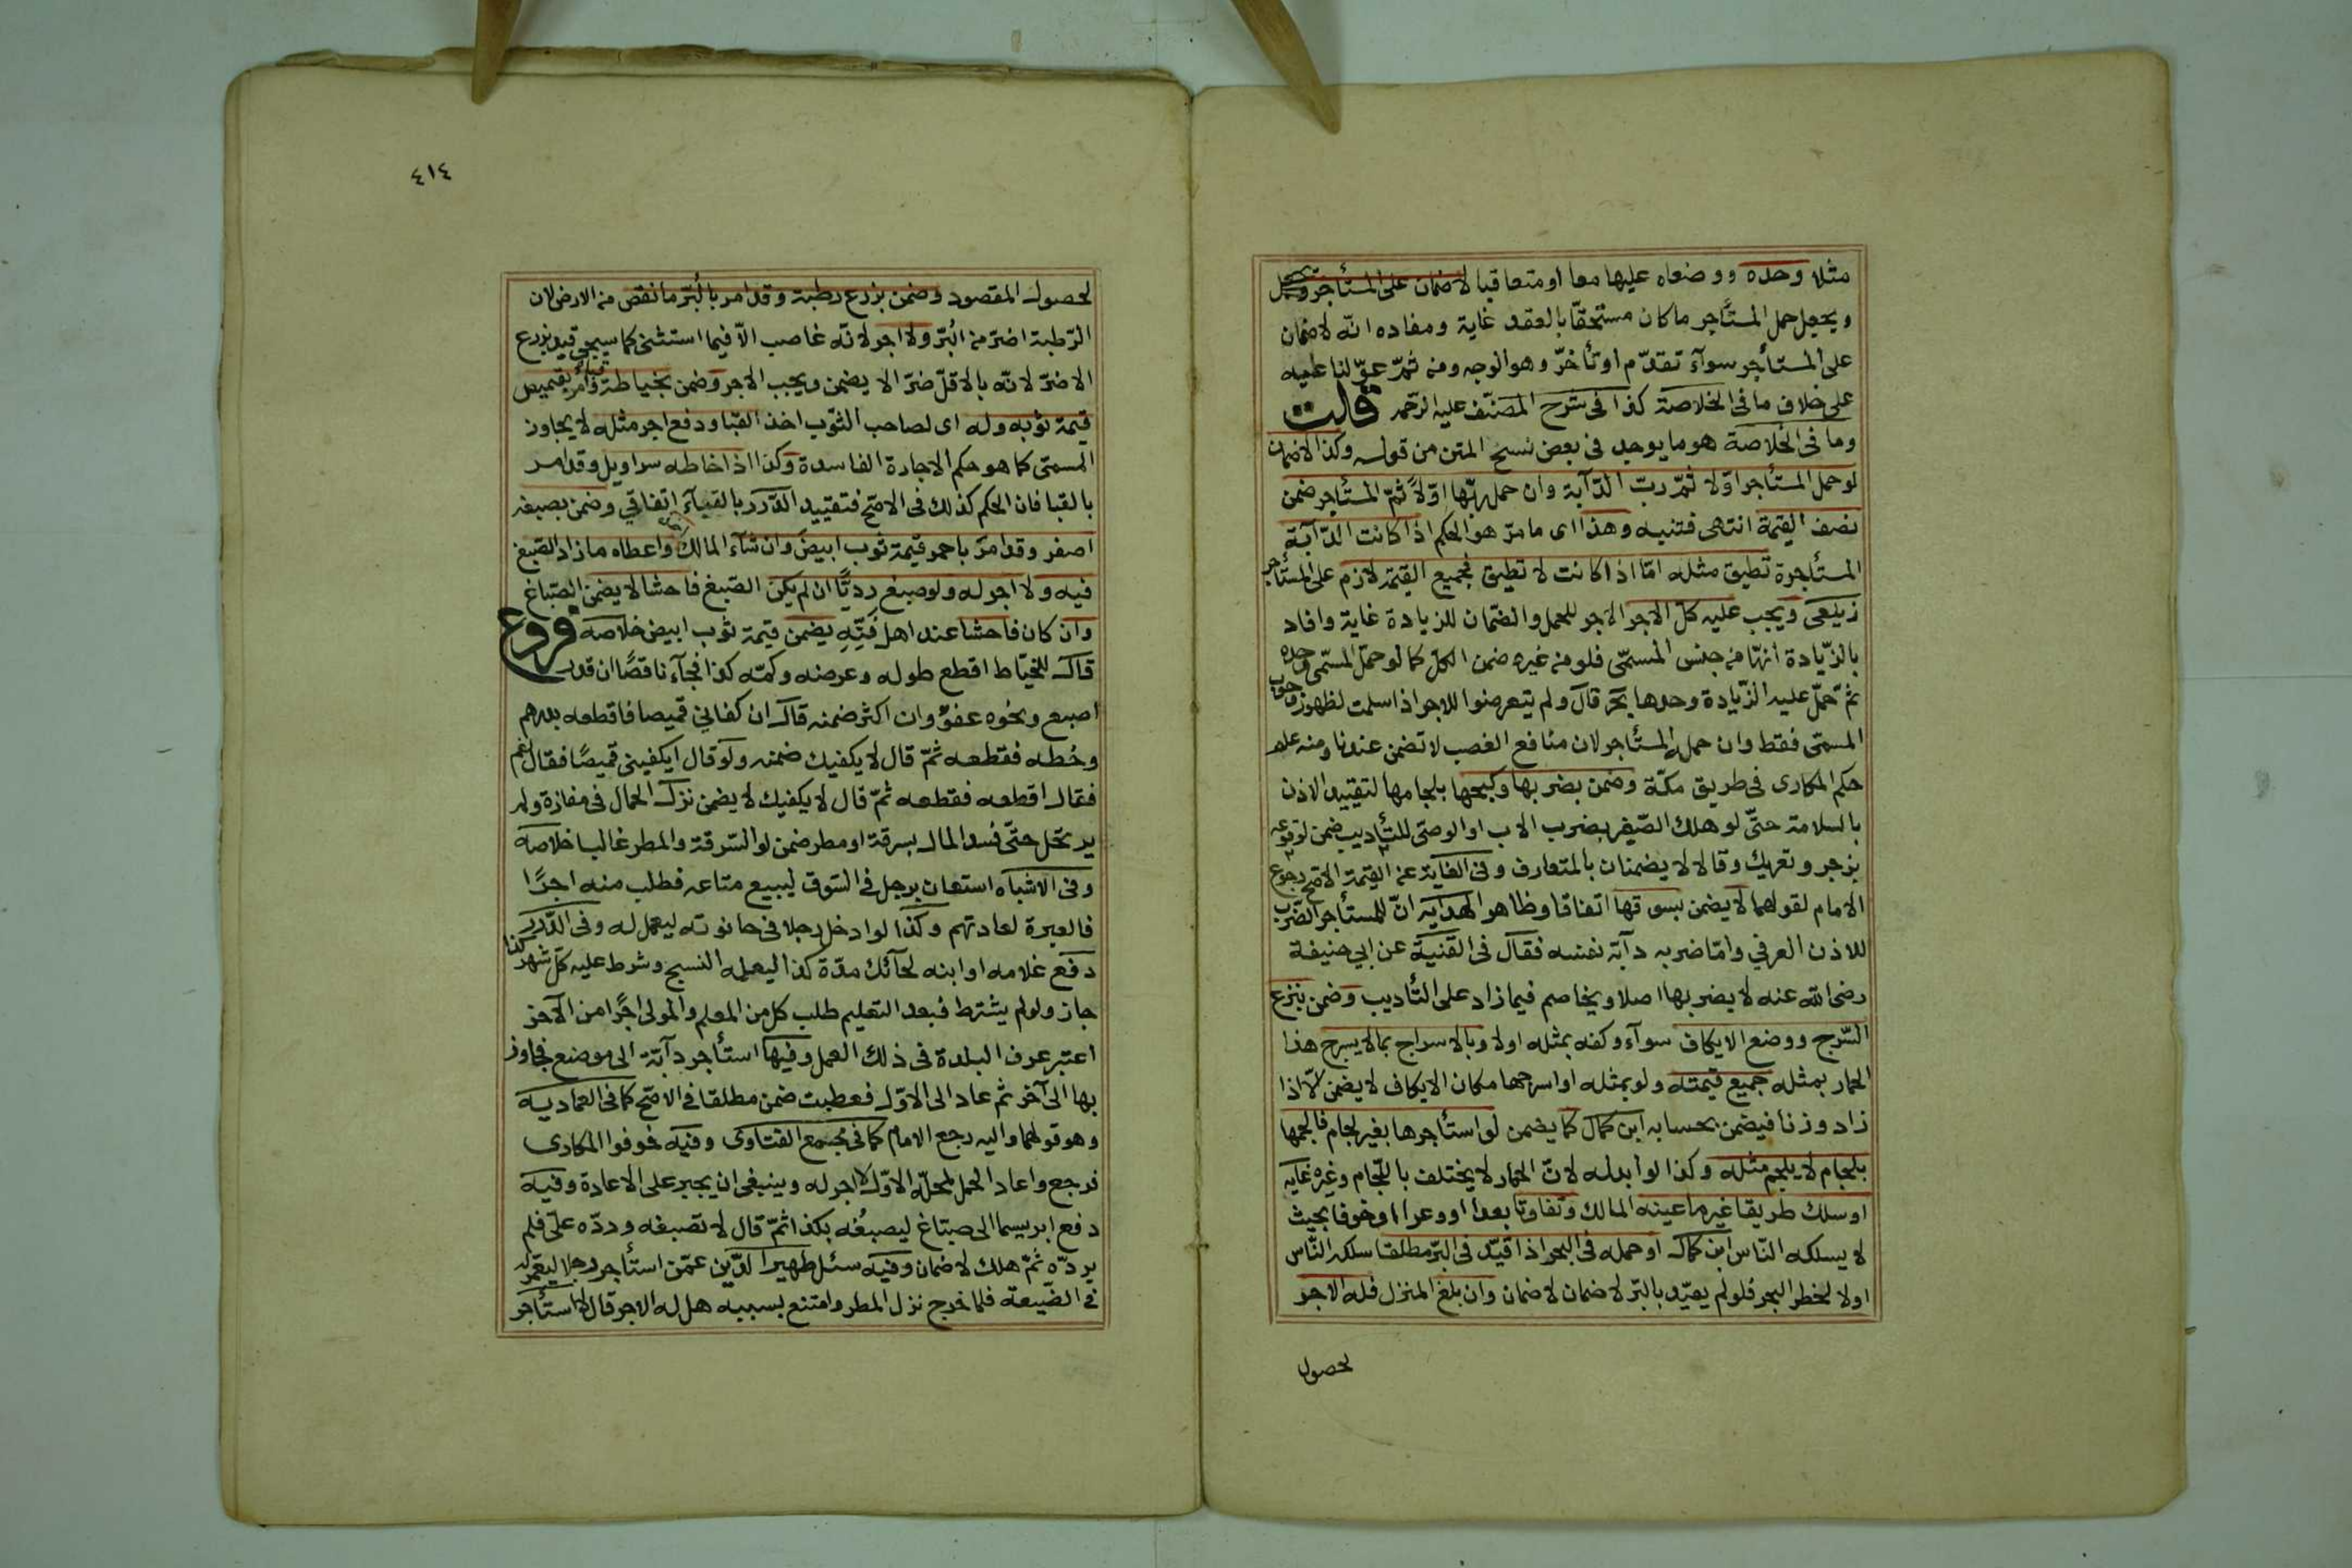 مثلا وحده ووضعاه عليها معا او متعاقبا لا ضمان على المستأجر
ويجعل حمل المستأجر ما كان مستحقا بالعقد غاية ومفاده انه لا ضمان
على المستأجر سوآء تقدّم او تأخرّ وهو الوجه ومن ثمّ عوّلنا عليه
على خلاف ما فى الخلاصة كذا فى شرح المصنّف عليه الرّحمه قلت
وما فى الخلاصة هو ما يوجد فى بعض نسخ المتن من قوله وكذا لا ضمان
لو حمل المستأجر اوّلا ثمّ ربّ الدّآبة وان حمل ربّها اوّلاً ثمّ المستأجر ضمن
نصف القيمة انتهى فتنبه وهذا اى ما مرّ هو الحكم اذا كانت الدّآبة
المستأجرة تطيق مثله امّا اذا كانت لا تطيق فجميع القيمة لازم على المستأجر
زيلعى ويجب عليه كلّ الاجر الاجر للحمل والضّمان للزيادة غاية وافاد
بالزّيادة انّها من جنس المسمّى فلو من غيره ضمن الكلّ كما لو حمّل المسمّى وحده
ثمّ حمّل عليه الزّيادة وحدها بحر قال ولم يتعرضوا للاجر اذا سلمت لظهور وجوب
المسمّى فقط وان حمله المستأجر لان منافع الغصب لا تضمن عندنا ومنه علم
حكم المكارى فى طريق مكّة وضمن بضربها وكبحها بلجامها لتقييد الاذن
بالسلامة حتّى لو هلك الصّغير بضرب الاب او الوصى للتأديب ضمن لوقوعه
بزجر وتعريك وقالا لا يضمنان بالمتعارف وفى الغاية عن التتمة الاصح رجوع
الامام لقولهما لا يضمن بسوقها اتفاقا وظاهر الهدايه انّ للمستأجر الضّرب
للاذن العرفي وامّا ضربه دآبة نفسه فقال فى القنية عن ابي حنيفة
رضى الله عنه لا يضربها اصلا ويخاصم فيما زاد على التأديب وضمن بنزع
السّرج ووضع الايكاف سوآء وكفه بمثله اولا وبالاسراج بما لا يسرج هذا
الحمار بمثله جميع قيمته ولو بمثله او اسرجها مكان الايكاف لا يضمن الّا اذا
زاد وزنا فيضمن بحسابه ابن كمال كما يضمن لو استأجرها بغير لجام فالجمها
بلجام لا يلجم مثله وكذا لو ابدله لانّ الحمار لا يختلف باللّجام وغيره غايه
او سلك طريقا غير ما عينه المالك وتفاوتا بعدا او وعرا او خوفا بحيث
لا يسلكه النّاس ابن كمال او حمله فى البحر اذا قيّد فى البرّ مطلقا سلكه النّاس
اولا لخطر البحر فلو لم يقيّد بالبرّ لا ضمان لا ضمان وان بلغ المنزل فله الاجر
لحصول
٤١٤
لحصول المقصود وضمن بزرع رطبة وقد امر بالبُرّ ما نقص من الارض لان
الرّطبة اضرّ من البُرّ ولا اجر لانّه غاصب الاّ فيما استثنى كما سيجى قيد بزرع
الاضرّ لانّه بالاقلّ ضرّا لا يضمن ويجب الاجر وضمن بخياطة قباء وامر بقميص
قيمة ثوبه وله اى لصاحب الثّوب اخذ القبا ودفع اجر مثله لا يجاوز
المسمّى كما هو حكم الاجارة الفاسدة وكذا اذا خاطه سراويل وقد امر
بالقبا فان الحكم كذلك فى الاصّح فتقييد الدّرر بالقبآء اتفاقي وضمن بصبغه
اصفر وقد امر باحمر قيمة ثوب ابيض وان شآء المالك واعطاه ما زاد الصّبغ
فيه ولا اجر له ولو صبغ رديّا ان لم يكن الصّبغ فاحشا لا يضمن الصّباغ
وان كان فاحشا عند اهل فنّه يضمن قيمة ثوب ابيض خلاصه فروع
قال للخيّاط اقطع طوله وعرضه وكمّه كذا فجآء ناقصًا ان قدر
اصبع ونحوه عفوٌ وان اكثر ضمنه قال ان كفاني قميصا فاقطعه بدرهم
وخُطه فقطعه ثمّ قال لا يكفيك ضمنه ولو قال ايكفينى قميصًا فقال نعم
فقال اقطعه فقطعه ثمّ قال لا يكفيك لا يضمن نزل الحمال فى مفازة ولم
يرتحل حتّى فسد المال بسرقة او مطر ضمن لو السّرقة والمطر غالبا خلاصه
وفى الاشباه استعان برجل فى السّوق ليبيع متاعه فطلب منه اجرًا
فالعبرة لعادتهم وكذا لو ادخل رجلا فى حانوته ليعمل له وفى الدّرر
دفع غلامه او ابنه لحآئك مدّة كذا ليعلمه النسج وشرط عليه كلّ شهر كذا
جاز ولو لم يشترط فبعد التعليم طلب كل من المعلم والمولى اجرًا من الآخر
اعتبر عرف البلدة فى ذلك العمل وفيها استأجر دآبّة الى موضع فجاوز
بها الى آخر ثم عاد الى الاوّل فعطبت ضمن مطلقا فى الاصّح كما فى العماديه
وهو قولهما واليه رجع الامام كما فى مجمع الفتاوى وفيه خوفوا المكارى
فرجع واعاد الحمل لمحلّه الاوّل لا اجر له وينبغى ان يجبر على الاعادة وفيه
دفع ابريسما الى صبّاغ ليصبُغه بكذا ثمّ قال لا تصبغه وردّه علىّ فلم
يردّه ثمّ هلك لا ضمان وفيه سئل ظهير الدّين عمّن استأجر رجلا ليعمل
فى الضّيعة فلما خرج نزل المطر وامتنع بسببه هل له الاجر قال لا استأجر